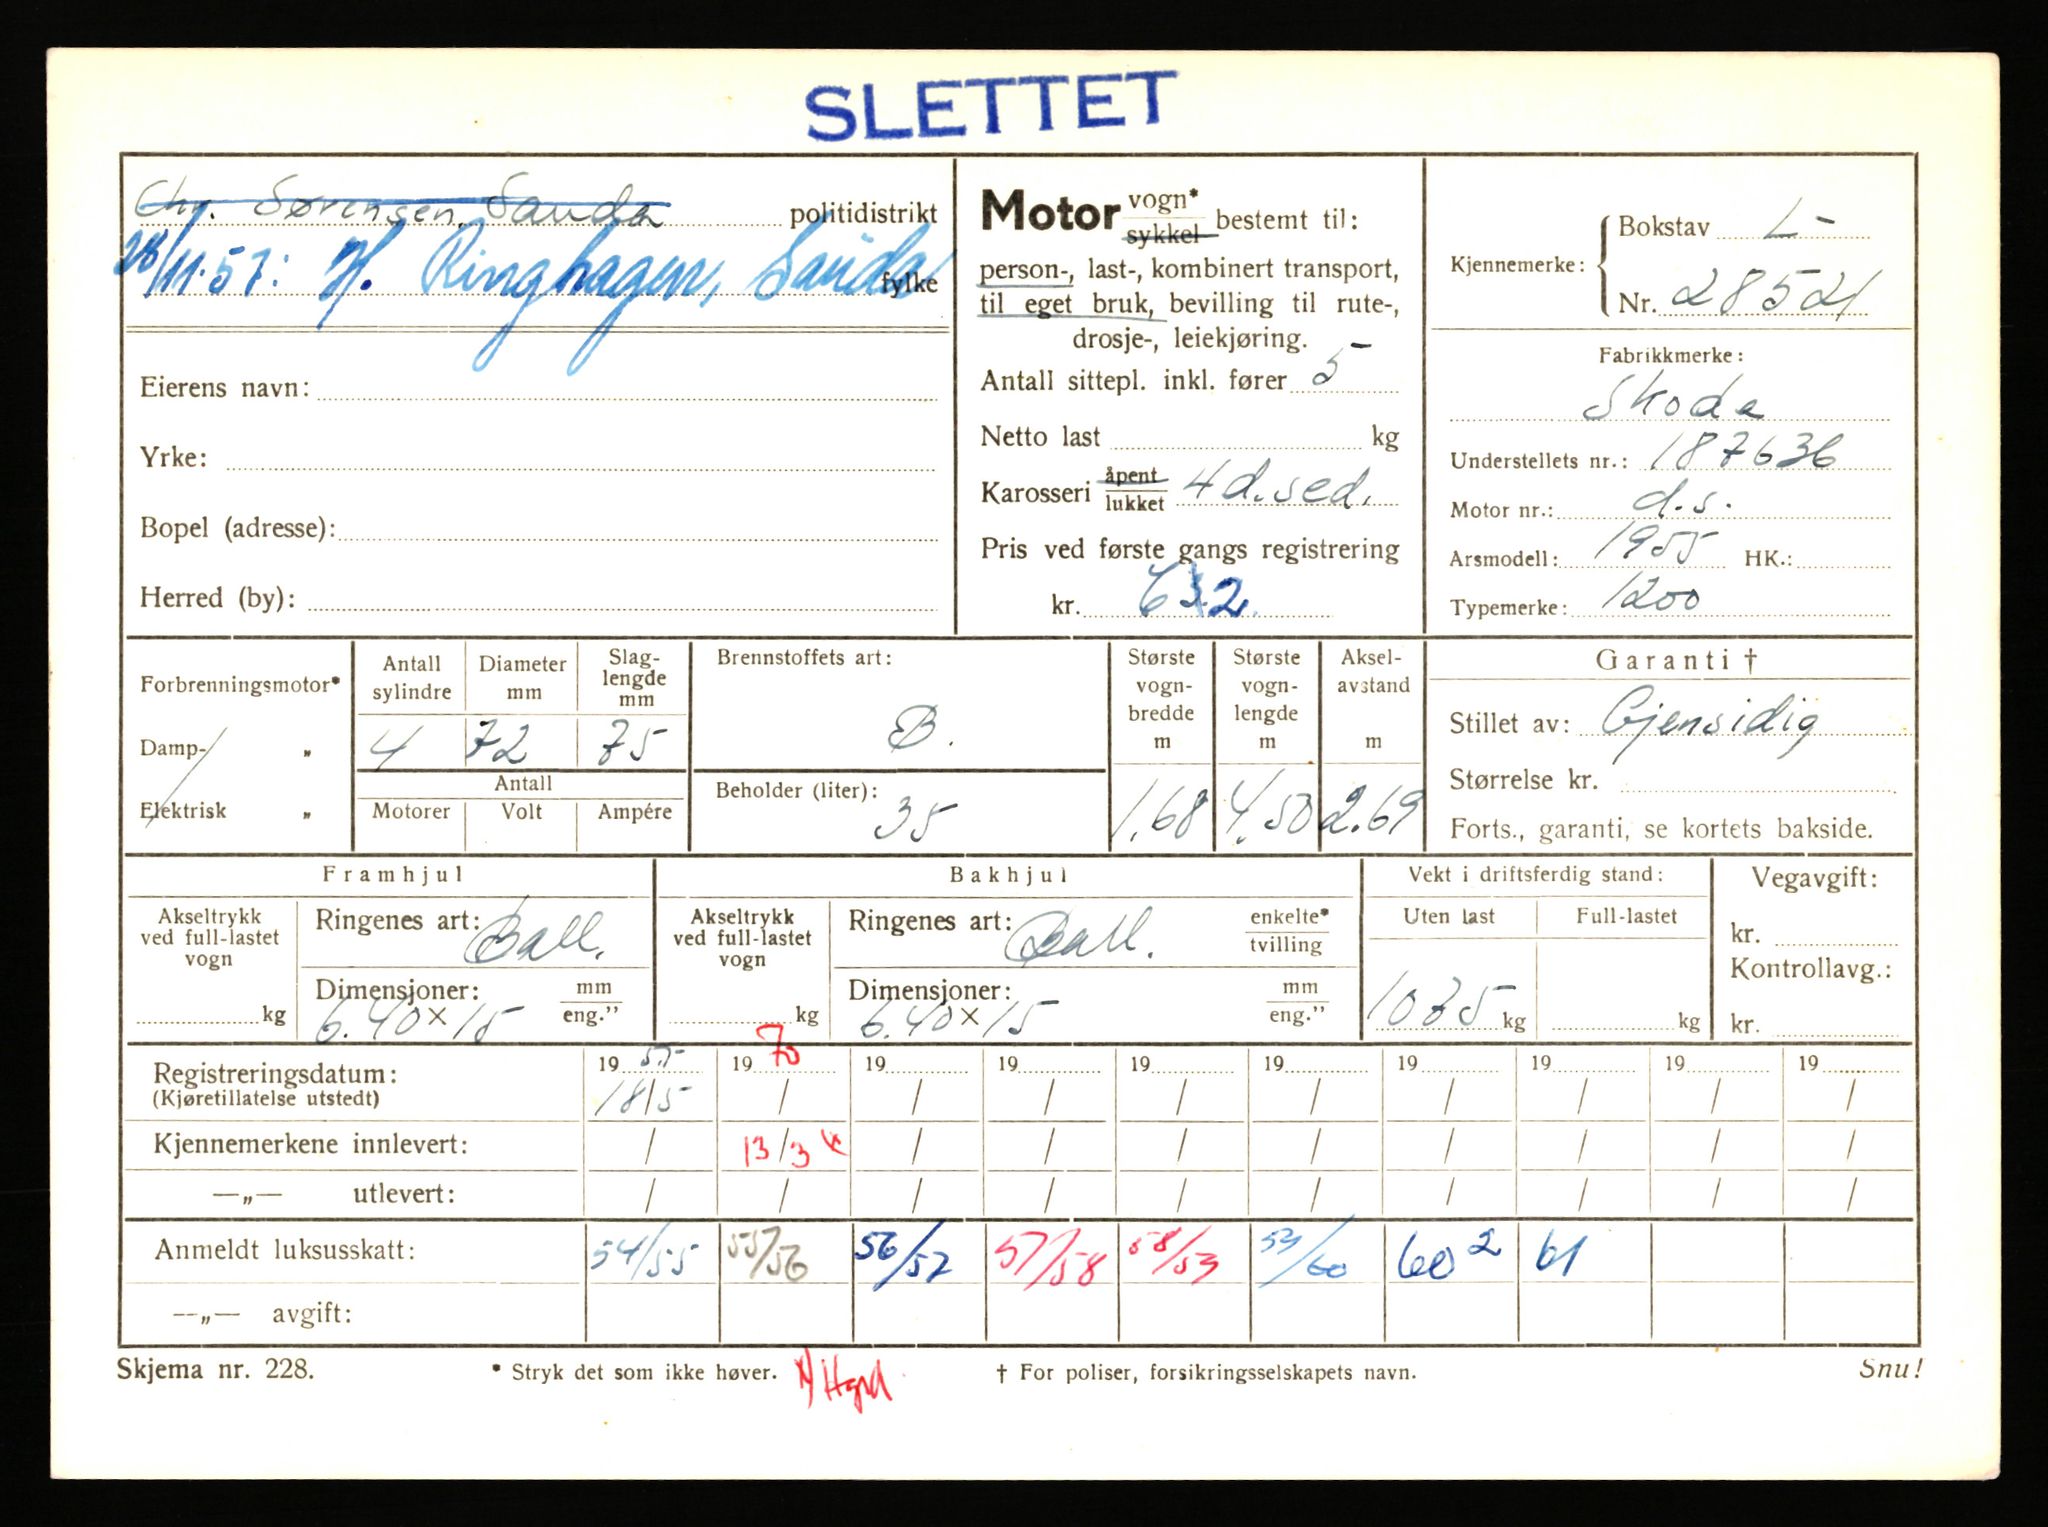 SLETTET
Chr. Sørensen, Sauda politidistrikt
28/11.57: H. Ringhagen, Sauda fylke
Eierens navn:
Yrke:
Bopel (adresse):
Herred (by):
Motor vogn* sykkel bestemt til:
person-, last-, kombinert transport,
til eget bruk, bevilling til rute-,
drosje-, leiekjøring.
Antall sittepl. inkl. fører 5
Netto last kg
Karosseri åpent lukket 4 d. sed.
Pris ved første gangs registrering
kr.
Kjennemerke: Bokstav L-
Nr. 28521
Fabrikkmerke:
Skoda
Understellets nr.: 187636
Motor nr.: d.s.
Arsmodell: 1955 HK.:
Typemerke: 1200
Forbrenningsmotor*
Damp- „
Elektrisk „
Antall sylindre 4
Diameter mm 72
Slag-lengde mm 75
Antall
Motorer Volt Ampére
Brennstoffets art:
B.
Beholder (liter):
35
Største vogn-bredde m 1.68
Største vogn-lengde m 4.50
Aksel-avstand m 2.69
Garanti †
Stillet av: Gjensidig
Størrelse kr.
Forts., garanti, se kortets bakside.
Framhjul
Akseltrykk ved full-lastet vogn
kg
Ringenes art: Ball.
Dimensjoner: mm eng.”
6.40 x 15
Bakhjul
Akseltrykk ved full-lastet vogn
kg
Ringenes art: Ball. enkelte* tvilling
Dimensjoner: mm eng.”
6.40 x 15
Vekt i driftsferdig stand:
Uten last Full-lastet
1035 kg kg
Vegavgift:
kr.
Kontrollavg.:
kr.
19 55 19 70 19 19 19 19 19 19 19 19
Registreringsdatum: 18/5 / / / / / / / / /
(Kjøretillatelse utstedt)
Kjennemerkene innlevert: / 13/3 x / / / / / / / /
—„— utlevert: / / / / / / / / / /
Anmeldt luksusskatt: 54/55 55/56 56/57 57/58 58/59 59/60 60 2 61
—„— avgift:
Skjema nr. 228.
* Stryk det som ikke høver.
† For poliser, forsikringsselskapets navn.
Snu!